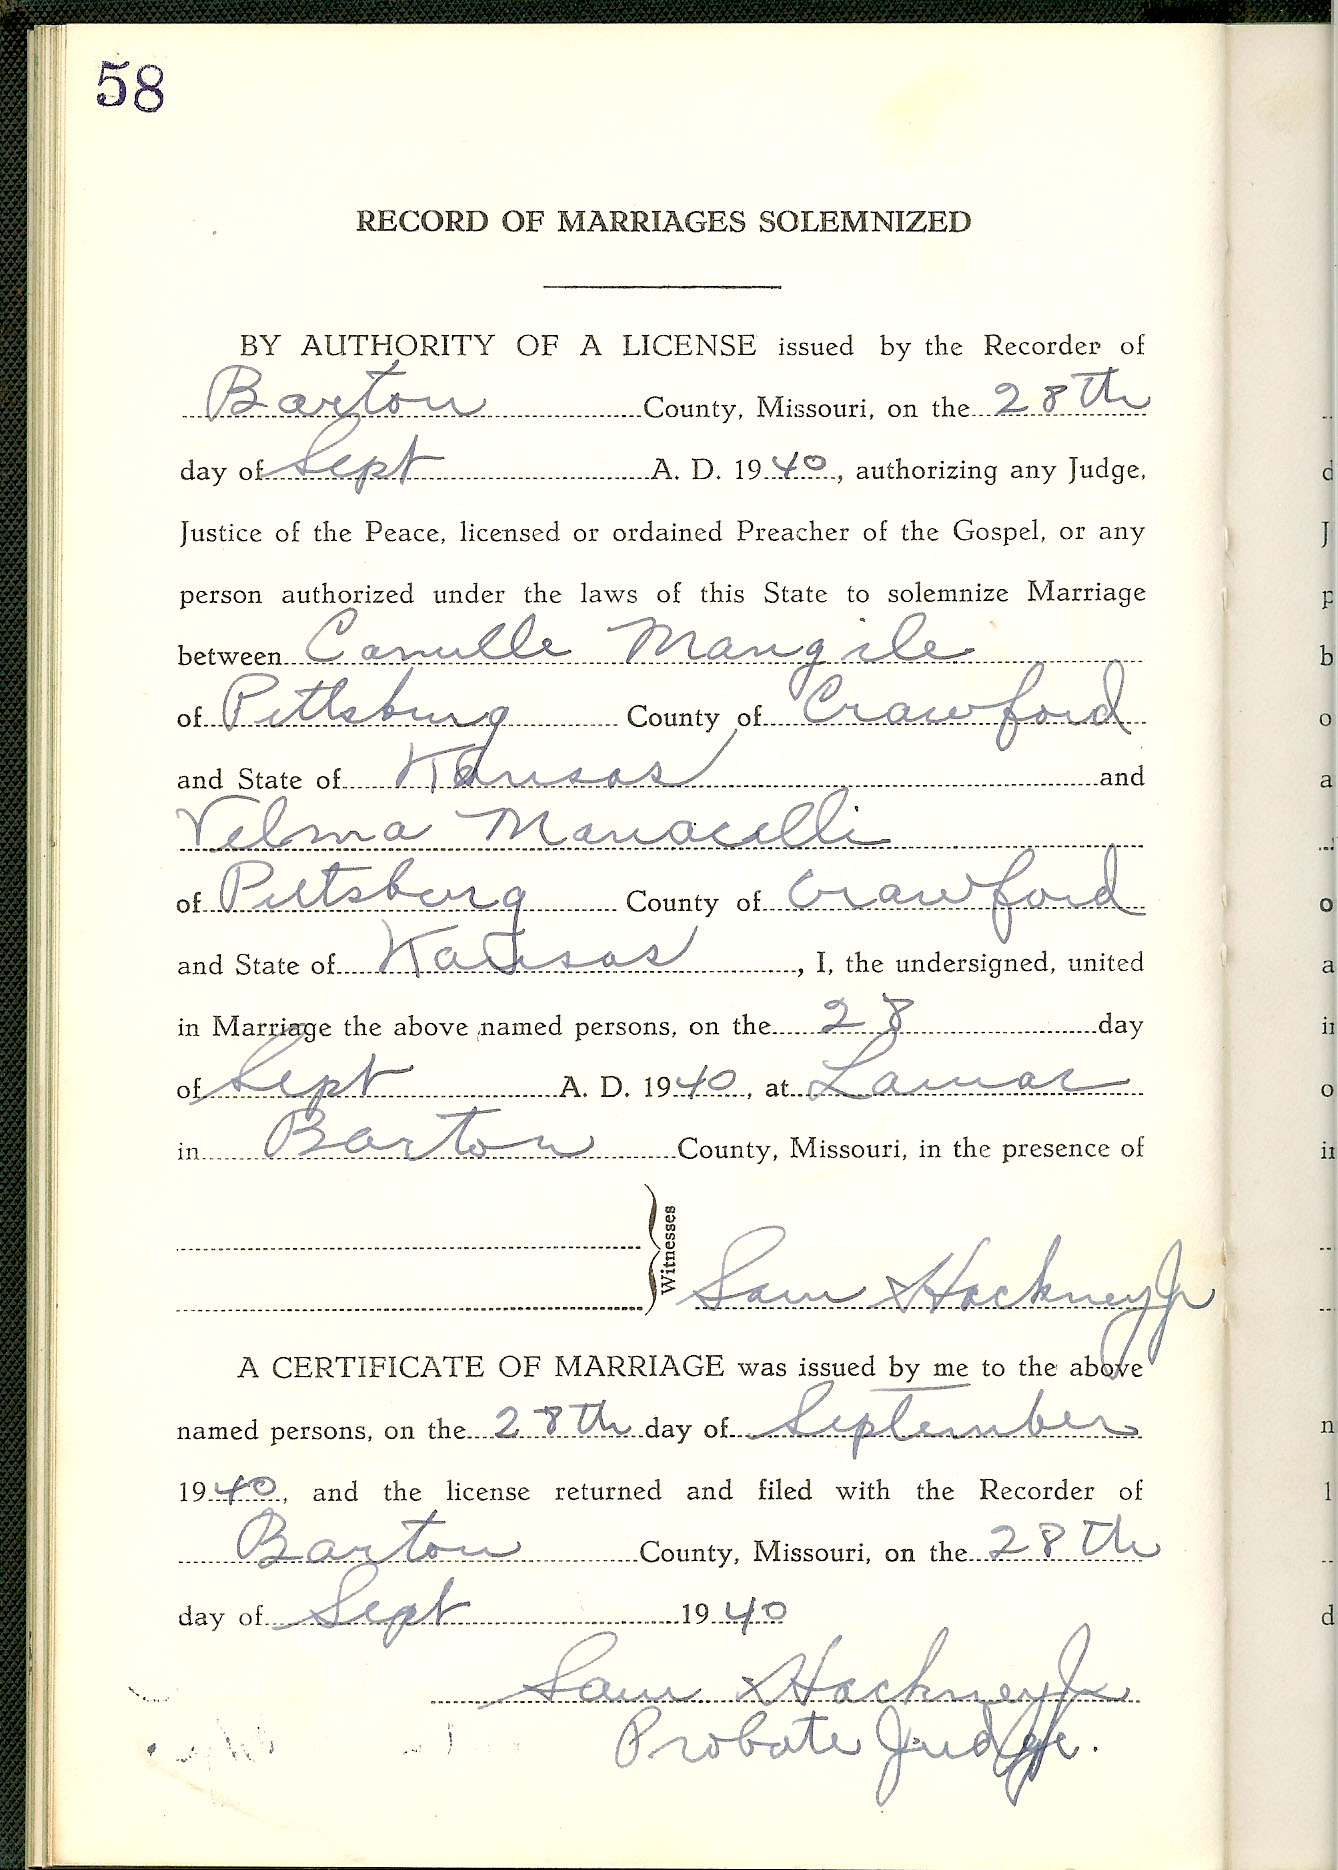 58
RECORD OF MARRIAGES SOLEMNIZED
BY AUTHORITY OF A LICENSE issued by the Recorder of
Barton County, Missouri, on the 28th
day of Sept A. D. 1940, authorizing any Judge,
Justice of the Peace, licensed or ordained Preacher of the Gospel, or any
person authorized under the laws of this State to solemnize Marriage
between Camille Mangile
of Pittsburg County of Crawford
and State of Kansas and
Velma Manacelli
of Pittsburg County of Crawford
and State of Kansas, I, the undersigned, united
in Marriage the above named persons, on the 28 day
of Sept A. D. 1940, at Lamar
in Barton County, Missouri, in the presence of
Witnesses
Sam Hackney Jr
A CERTIFICATE OF MARRIAGE was issued by me to the above
named persons, on the 28th day of September
1940, and the license returned and filed with the Recorder of
Barton County, Missouri, on the 28th
day of Sept 1940
Sam Hackney Jr
Probate Judge.